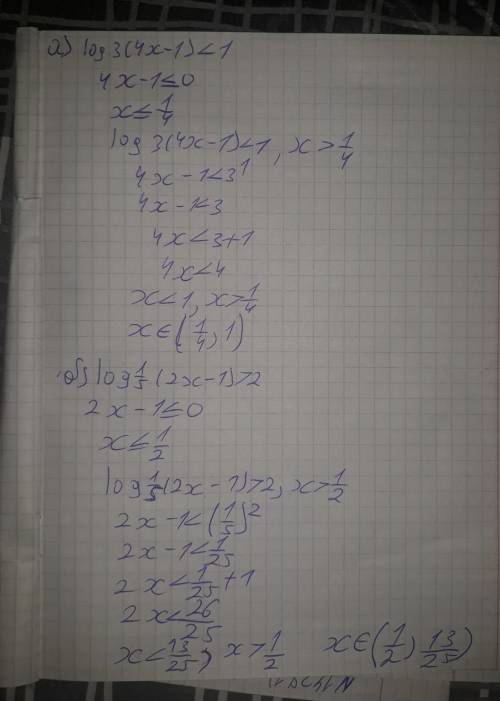 а) log 3(4x-1)<1
4x-1≤0
x≤1/4
log 3(4x-1)<1, x>1/4
4x-1<3¹
4x-1<3
4x<3+1
4x<4
x<1, x>1/4
x∈(1/4, 1)
б) log 1/5 (2x-1)>2
2x-1≤0
x≤1/2
log 1/5 (2x-1)>2, x>1/2
2x-1<(1/5)²
2x-1<1/25
2x<1/25+1
2x<26/25
x<13/25, x>1/2 x∈(1/2, 13/25)